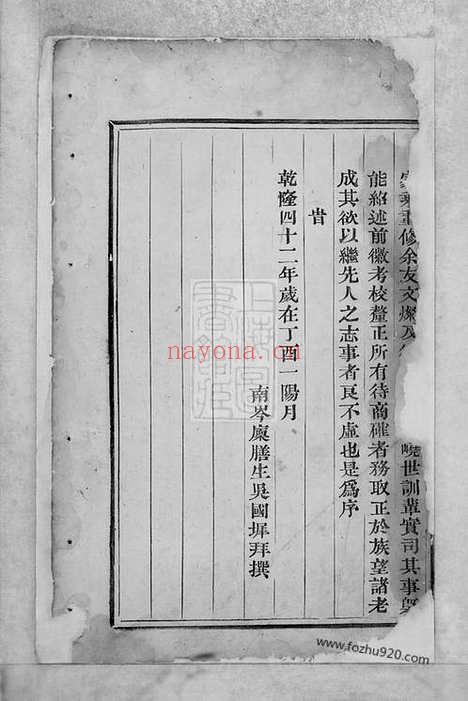 修余友文燦及
曉世訓輩實司其事
能紹述前徽考校釐正所有待商確者務取正於族望諸老
成其欲以繼先人之志事者良不虛也是為序
旹
乾隆四十二年歲在丁酉一陽月
南岑廩膳生吳國墀拜撰
nayona.cn
www.fozhu920.com